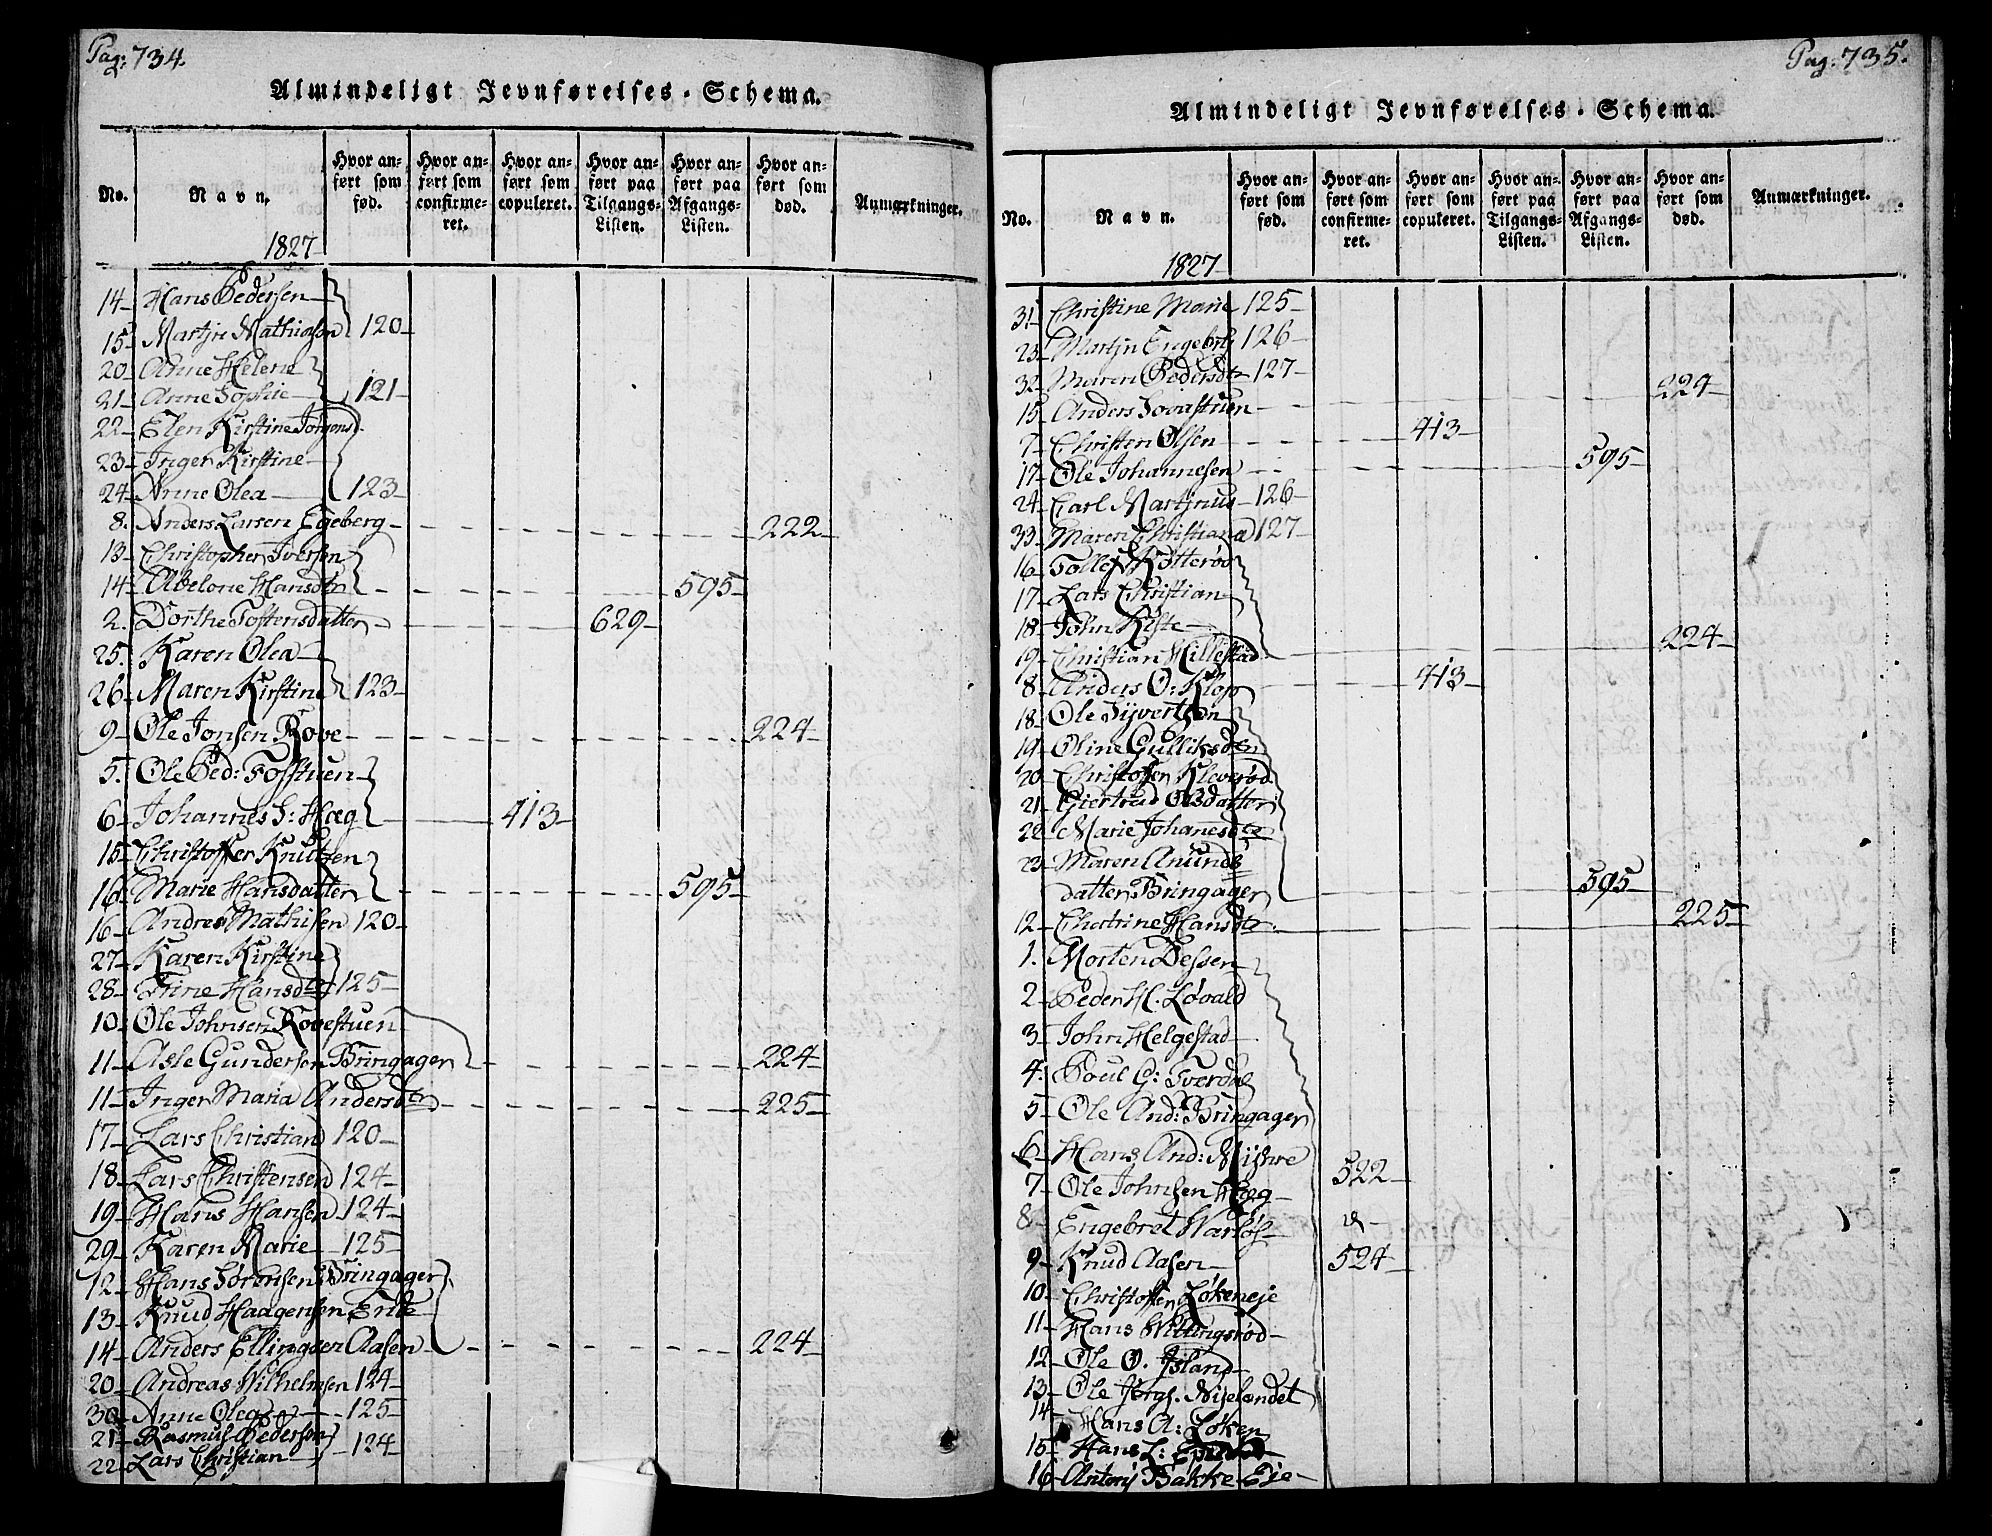 Pag: 734.
Almindeligt Jevnførelses-Schema.
No.
Navn.
1827
Hvor anført som fød.
Hvor anført som confirmeret.
Hvor anført som copuleret.
Hvor anført paa Tilgangs-Listen.
Hvor anført paa Afgangs-Listen.
Hvor anført som død.
Anmærkninger.
14 Hans Pedersen
15 Martin Mathiasen 120
20 Anne Helene
21 Anne Sophie 121
22 Elen Kirstine Jørgensd.
23 Inger Kirstine
24 Anne Olea 123
8. Anders Larsen Egeberg 222
13 Christopher Iversen
14 Abelone Hansdtr 595
2. Dorthe Tostensdatter 629
25. Karen Olea
26 Maren Kirstine 123
9 Ole Jonsen Rove 224
5. Ole Ped: Tofftuen
6 Johannes S: Hæg 413
15 Christoffer Knutzen
16 Marie Hansdatter 595
16 Andres Mathisen 120
27 Karen Kirstine
28 Trine Hansdtr 125
10 Ole Johnsen Rovestuen
11 Asle Gundersen Bringager 224
11 Inger Maria Andersdtr 225
17 Lars Christian 120
18 Lars Christensen 124
19 Hans Hansen 124
29 Karen Marie 125
12 Hans Sørensen Bringager
13 Knud Haagensen Enke
14 Anders Ellingsen Aasen 224
20 Andreas Wilhelmsen 124
30 Anne Olea 125
21 Rasmus Pedersen
22 Lars Christian 124
Pag. 735.
Almindeligt Jevnførelses-Schema.
No.
Navn.
1827
Hvor anført som fød.
Hvor anført som confirmeret.
Hvor anført som copuleret.
Hvor anført paa Tilgangs-Listen.
Hvor anført paa Afgangs-Listen.
Hvor anført som død.
Anmærkninger.
31 Christine Marie 125
23 Martin Engebrt 126
32 Maren Pedersdtr 127
15 Anders 224
7 Christen Olsen 413
17 Ole Johannesen 595
24 Carl Martinus 126
33 Maren Christiana 127
16 Tollef Kotterød
17 Lars Christian
18 John Kiste
19 Christian Hillestad 224
8 Anders O: Klop 413
18 Ole Syvertsen
19 Oline Gulliksdtr
20 Christoffer Kleverød
21 Giertrud Olsdatter
22 Marie Johanesdtr
23 Maren Anunds
datter Bringager 595
12 Chatrine Hansdtr 225
1. Morten Dessen
2 Peder H. Løvald
3 John Helgestad
4. Poul G: Tverdal
5 Ole And: Bringager
6 Hans And:
7 Ole Johnsen Hæg 522
8 Engebret
9 Knud Aasen 524
10 Christoffer Løkeneje
11 Hans
12 Ole O. Island
13 Ole Jørgs.
14 Hans A: Løken
15 Hans L:
16 Anton Bakke Eje